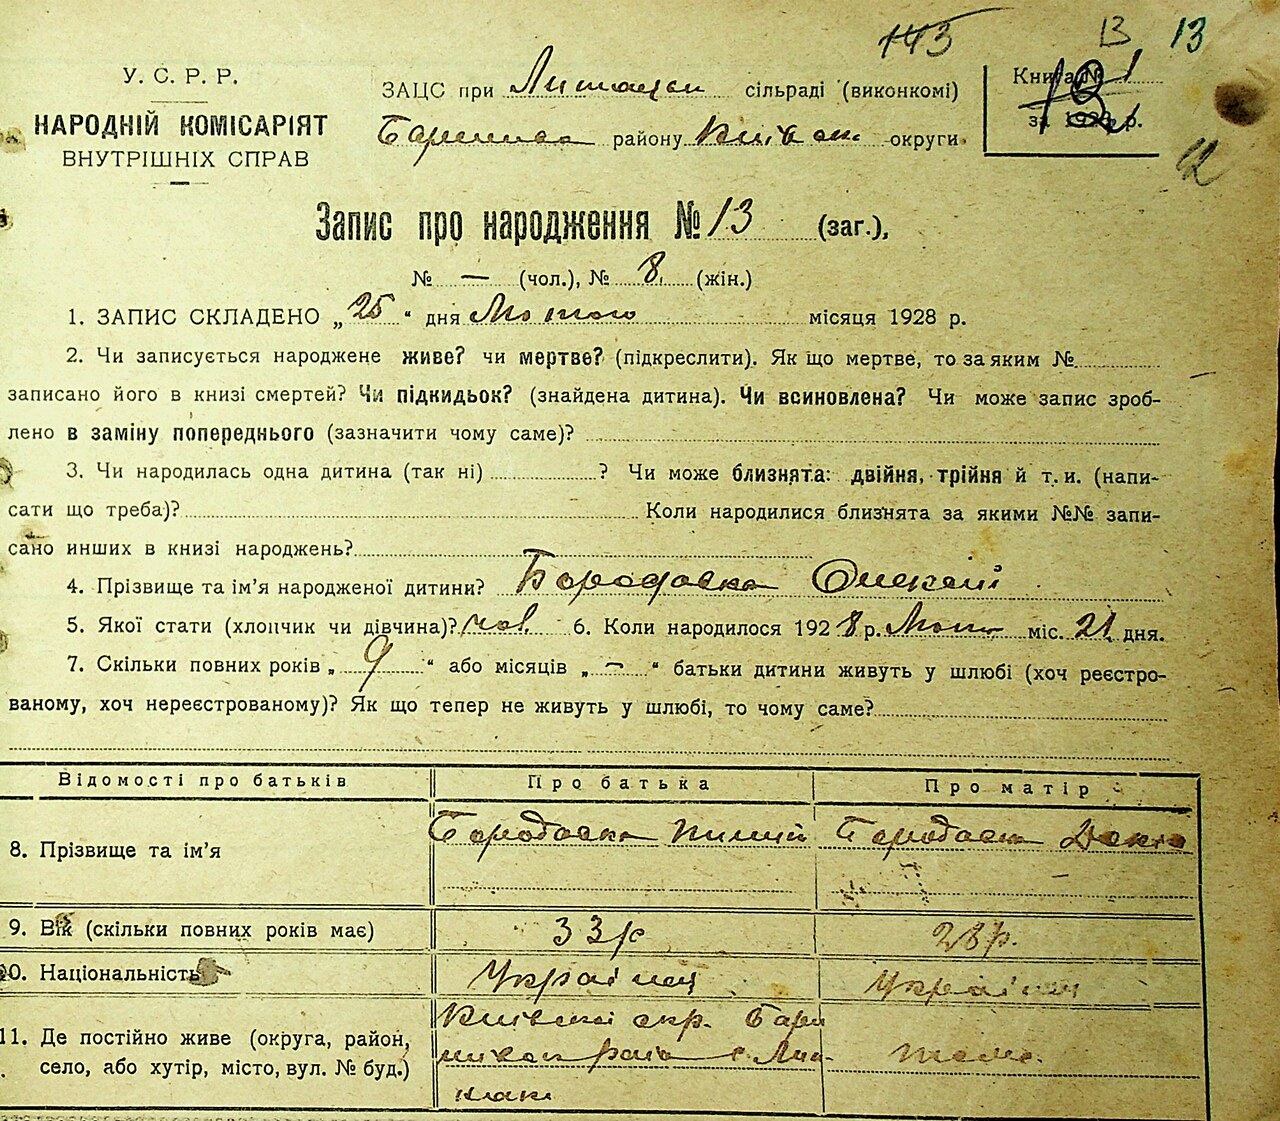 143 13 13
У. С. Р. Р.
НАРОДНІЙ КОМІСАРІЯТ
ВНУТРІШНІХ СПРАВ
ЗАЦС при сільраді (виконкомі)
району округи
Книга №
за 192 р.
12
Запис про народження № 13 (заг.),
№ — (чол.), № 8 (жін.)
1. ЗАПИС СКЛАДЕНО „25“ дня Лютого місяця 1928 р.
2. Чи записується народжене живе? чи мертве? (підкреслити). Як що мертве, то за яким №
записано його в книзі смертей? Чи підкидьок? (знайдена дитина). Чи всиновлена? Чи може запис зроб-
лено в заміну попереднього (зазначити чому саме)?
3. Чи народилась одна дитина (так ні) ? Чи може близнята: двійня, трійня й т. и. (напи-
сати що треба)? Коли народилися близнята за якими №№ запи-
сано инших в книзі народжень?
4. Прізвище та ім’я народженої дитини? Бородавка Олексій
5. Якої стати (хлопчик чи дівчина)? чол. 6. Коли народилося 1928 р. міс. 21 дня.
7. Скільки повних років „9“ або місяців „—“ батьки дитини живуть у шлюбі (хоч реєстро-
ваному, хоч нереєстрованому)? Як що тепер не живуть у шлюбі, то чому саме?
Відомості про батьків Про батька Про матір
8. Прізвище та ім’я Бородавка Бородавка
9. Вік (скільки повних років має) 33 р 28 р.
10. Національність Українец
11. Де постійно живе (округа, район,
село, або хутір, місто, вул. № буд.)